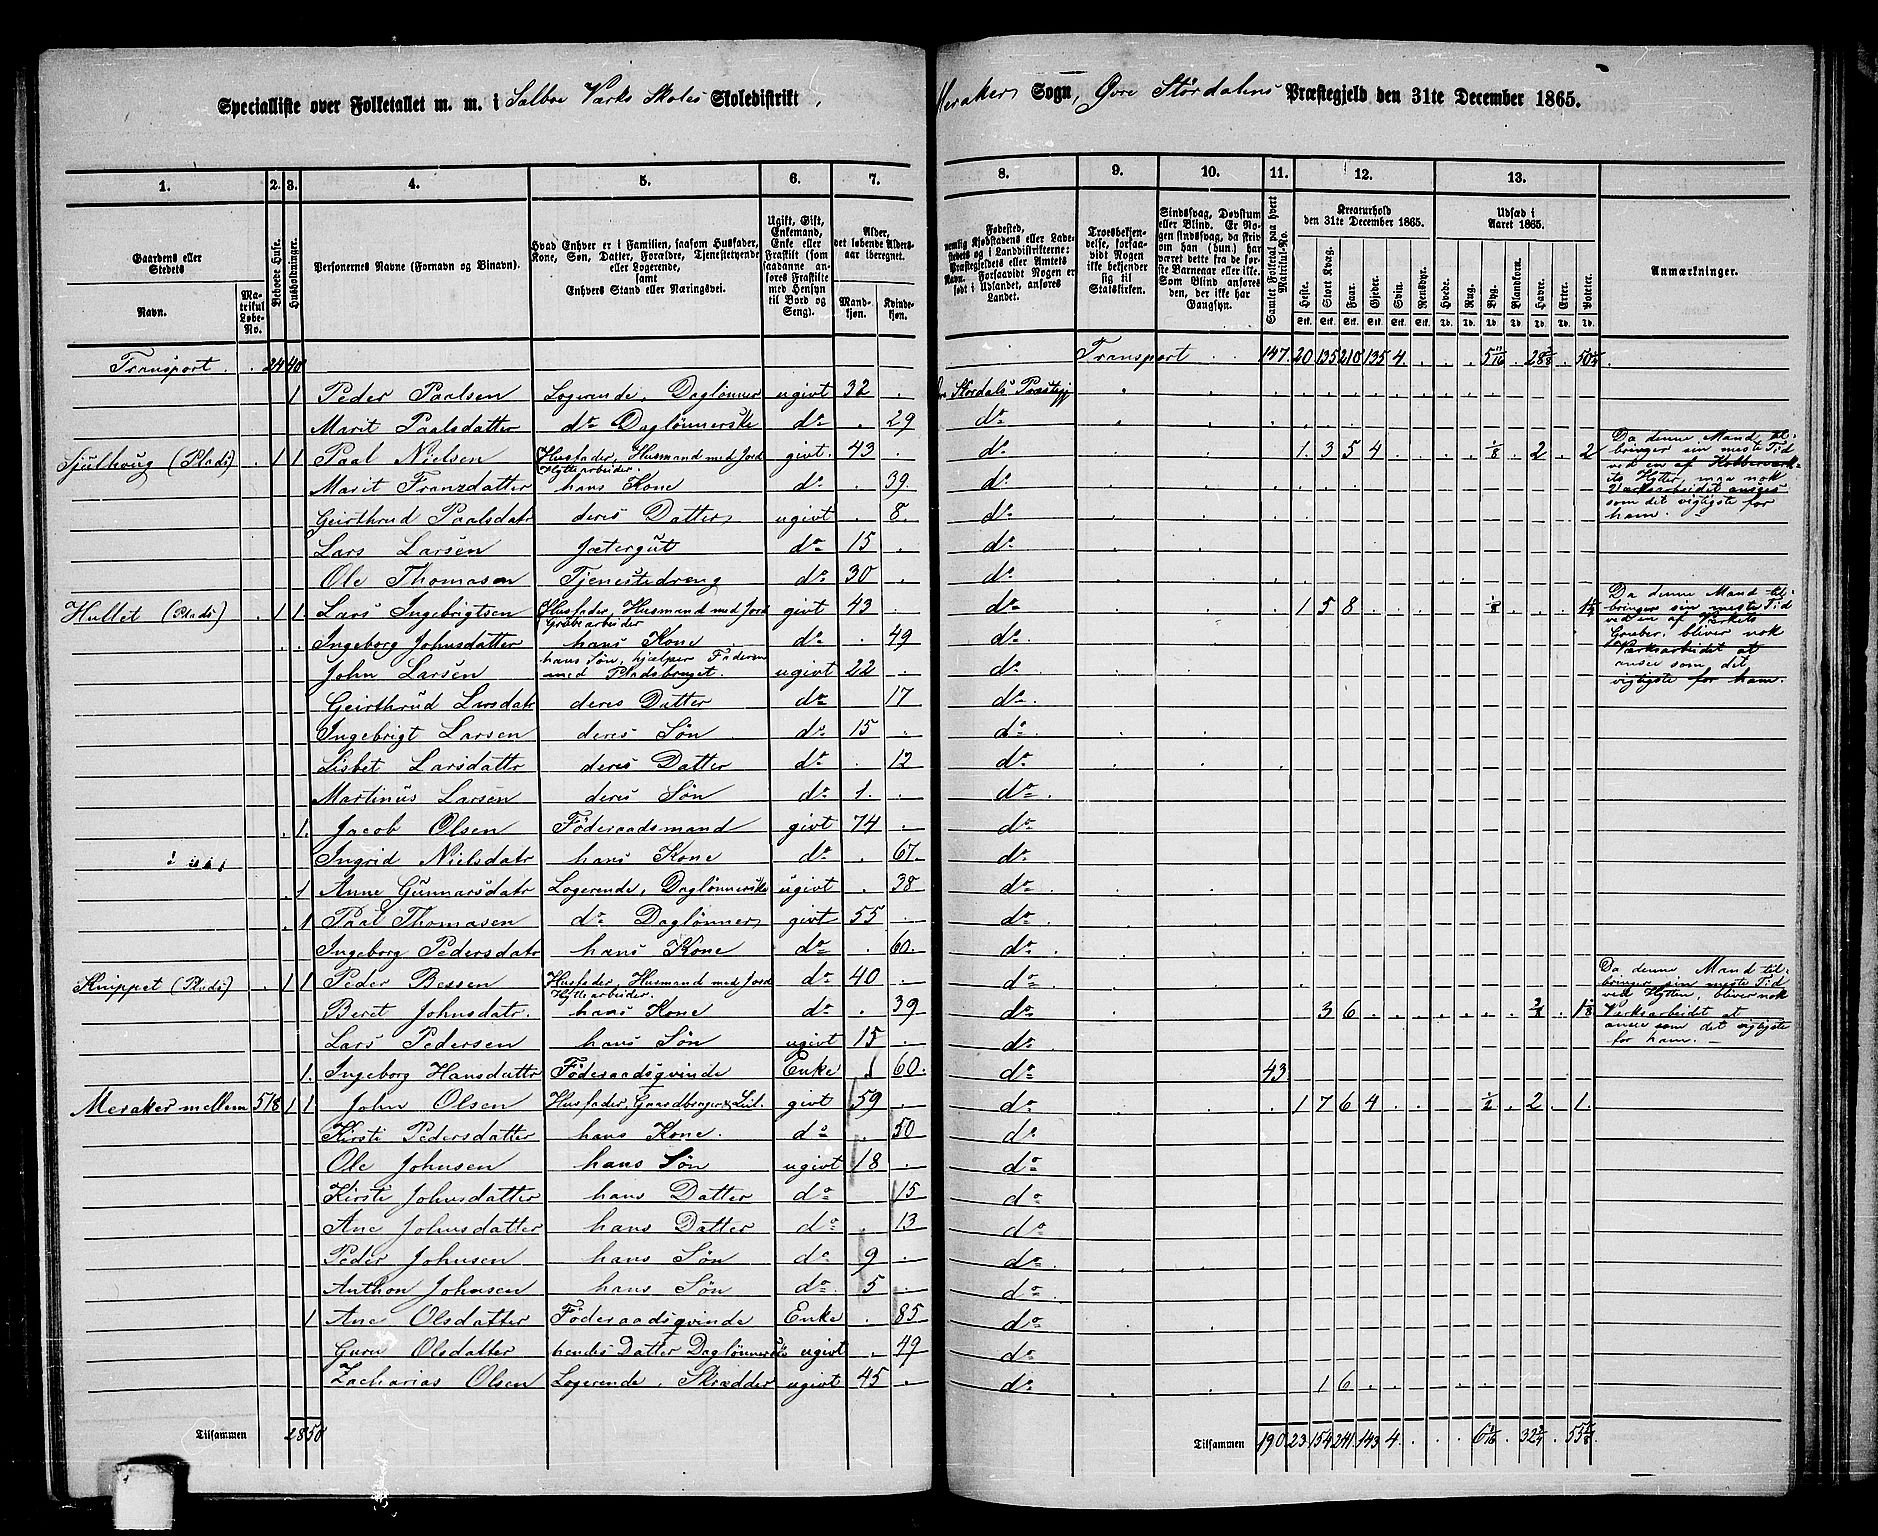 Specialliste over Folketallet m. m. i Selboe Værks Skoles Skoledistrikt, Meraker Sogn, Øvre Størdalens Præstegjeld den 31te December 1865.
1. 2. 3. 4. 5. 6. 7. 8. 9. 10. 11. 12. 13.
Gaardens eller Stedets
Navn. Matrikul Løbe-No.
Beboede Huse.
Husholdninger.
Personernes Navne (Fornavn og Binavn).
Hvad Enhver er i Familien, saasom Husfader, Kone, Søn, Datter, Forældre, Tjenestetyende eller Logerende, samt Enhvers Stand eller Næringsvei.
Ugift, Gift, Enkemand, Enke eller Fraskilt (som saadanne anføres Fraskilte med Hensyn til Bord og Seng).
Alder, det løbende Aldersaar iberegnet.
Mandkjøn. Kvindekjøn.
Fødested, nemlig Kjøbstadens eller Ladestedets og i Landdistrikterne: Præstegjeldets eller Amtets Navn. Forsaavidt Nogen er født i Udlandet, anføres Landet.
Troesbekjendelse, forsaavidt Nogen ikke bekjender sig til Statskirken.
Sindssvag, Døvstum eller Blind. Er Nogen sindssvag, da skriv om han (hun) har været dette fra de første Barneaar eller ikke. Som Blind anføres den, der ikke har Gangsyn.
Samlet Folketal paa hvert Matrikul-No.
Kreaturhold den 31te December 1865.
Heste. Stort Kvæg. Faar. Gjeder. Svin. Rensdyr.
Udsæd i Aaret 1865.
Hvede. Rug. Byg. Blandkorn. Havre. Erter. Poteter.
Anmærkninger.
Transport. 24 40 Transport 147. 20 135 210 135 4. 5 11/16 28
1 Peder Paalsen Logerende, Daglønner ugivt 32 Størdals Præstegj
Marit Paalsdatter do Daglønnerske do 29 do
Sjulhoug (Plads) 1 1 Paal Nielsen Husfader, Husmand med Jord Hyttearbeider. givt. 43 do 1. 3 5 4 1/8 2 2 Da denne Mand tilbringer sin meste Tid ved en af Kobberværkets Hytter, maa nok Værksarbeidet ansees som det vigtigste for ham.
Marit Franzdatter hans Kone do 39 do
Geirthrud Paalsdatr deres Datter ugivt 8. do
Lars Larsen Jætergut do 15 do
Ole Thomasen Tjenestedreng do 30 do
Hullet (Plads) 1 1 Lars Ingebrigtsen Husfader, Husmand med Jord Grubearbeider givt 43 do 1 5 8 Da denne Mand tilbringer sin meste Tid ved en af Værkets Gruber, bliver nok Værksarbeidet at ansee som det vigtigste for ham.
Ingeborg Johnsdatter hans Kone do 49 do
John Larsen hans Søn, hjælper Faderen med Pladsbruget. ugivt 22 do
Geirthrud Larsdatr deres Datter do 17 do
Ingebrigt Larsen deres Søn do 15 do
Lisbet Larsdattr deres Datter do 12 do
Martinus Larsen deres Søn do 1. do
1. Jacob Olsen Føderaadsmand givt 74 do
Ingrid Nielsdatr hans Kone do 67. do
1 Anne Gunnarsdatr Logerende, Daglønnerske ugivt 38 do
1 Paal Thomasen do Daglønner givt 55 do
Ingeborg Pedersdatr hans Kone do 60. do
Knippet (Plads) 1 1 Peder Bessen Husfader, Husmand med Jord Hyttearbeider. do 40 do Da denne Mand tilbringer sin meste Tid ved Hytten, bliver nok Værksarbeidet at ansee som det vigtigste for ham. —
Beret Johnsdatr. hans Kone do 39 do 3 6
Lars Pedersen hans Søn ugivt 15 do
1. Ingeborg Hansdattr Føderaadsqvinde Enke 60. do 43
Meraker mellem 518 1 1 John Olsen Husfader, Gaardbruger & Leil. givt 59 do 1 7 6 4 1/2 2 1.
Kirsti Pedersdatter hans Kone. do 50 do
Ole Johnsen hans Søn ugivt 18 do
Kirsti Johnsdatter hans Datter do 15 do
Ane Johnsdatter hans Datter do 13 do
Peder Johnsen hans Søn do 9 do
Anthon Johnsen hans Søn do 5 do
1 Ane Olsdatter Føderaadsqvinde Enke 85 do
Guru Olsdatter hendes Datter Daglønnerske ugivt 49 do
Zacharias Olsen Logerende, Skrædder ugivt 45 do 1 6
Tilsammen 28 50 Tilsammen 190 23 154 241 143 4